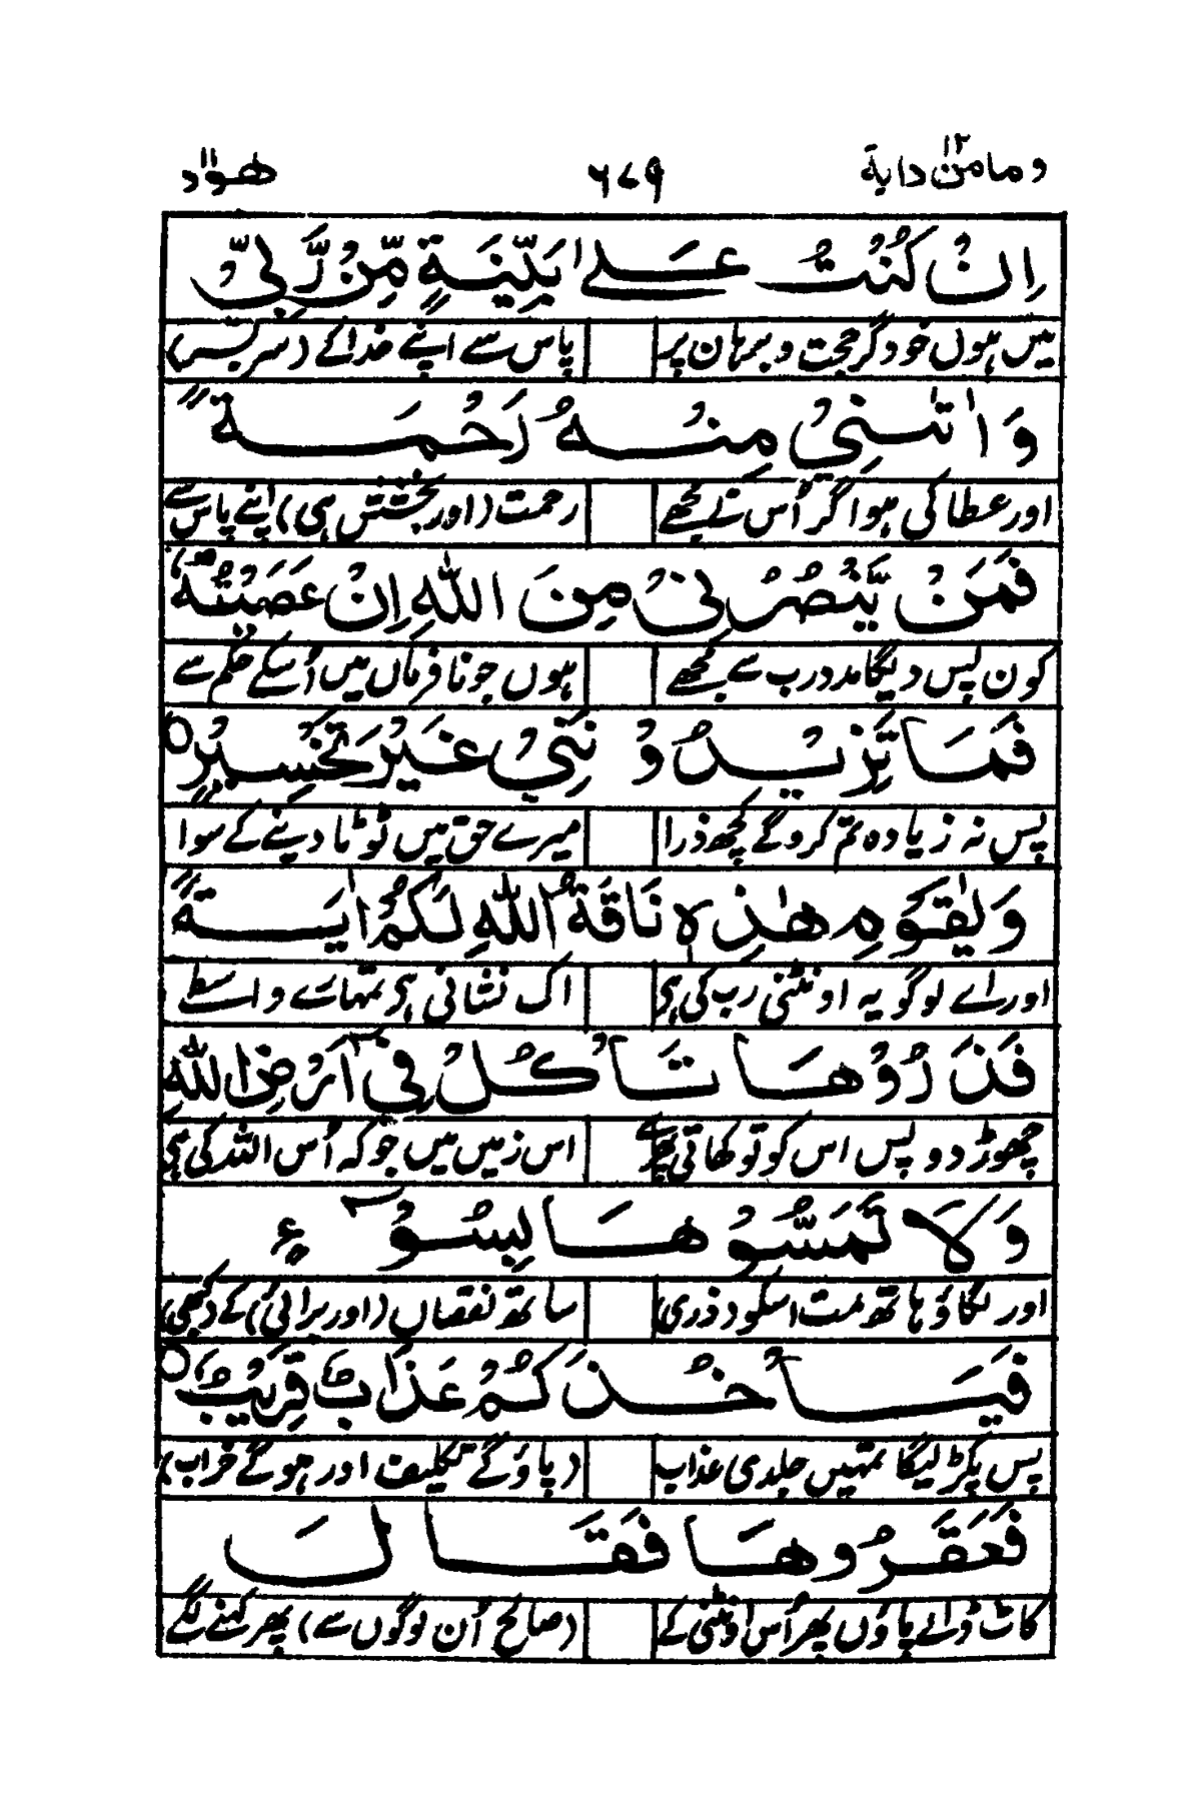 ومامن دابة ١٢ ٦٧٩ هود ١١
اِنْ كُنْتُ عَلٰى بَيِّنَةٍ مِّنْ رَّبِّيْ
میں ہوں خود گر حجت و برہان پر پاس سے اپنے خدا کے (سربسر)
وَاٰتٰىنِيْ مِنْهُ رَحْمَةً
اور عطا کی ہو اگر اُس نے مجھے رحمت (اور بخشش ہی) اپنے پاس سے
فَمَنْ يَّنْصُرُنِيْ مِنَ اللّٰهِ اِنْ عَصَيْتُهٗ
کون پس دیگا مدد رب سے مجھے ہوں جو نافرماں میں اُسکے حکم سے
فَمَا تَزِيْدُوْنَنِيْ غَيْرَ تَخْسِيْرٍ
پس نہ زیادہ تم کروگے کچھ ذرا میرے حق میں ٹوٹا دینے کے سوا
وَيٰقَوْمِ هٰذِهٖ نَاقَةُ اللّٰهِ لَكُمْ اٰيَةً
اور اے لوگو یہ اونٹنی رب کی ہی اک نشانی ہی تمہارے واسطے
فَذَرُوْهَا تَأْكُلْ فِيْٓ اَرْضِ اللّٰهِ
چھوڑ دو پس اس کو تو کھاتی پھرے اس زمیں میں جو کہ اُس اللہ کی ہی
وَلَا تَمَسُّوْهَا بِسُوْٓءٍ
اور لگاؤ ہاتھ مت اسکو ذری ساتھ نقصاں (اور برائی) کے کبھی
فَيَأْخُذَكُمْ عَذَابٌ قَرِيْبٌ
پس پکڑ لیگا تمہیں جلدی عذاب (پاؤگے تکلیف اور ہوگے خراب)
فَعَقَرُوْهَا فَقَالَ
کاٹ ڈالے پاؤں پھر اُس اونٹنی کے (صالح اُن لوگوں سے) پھر کہنے لگے